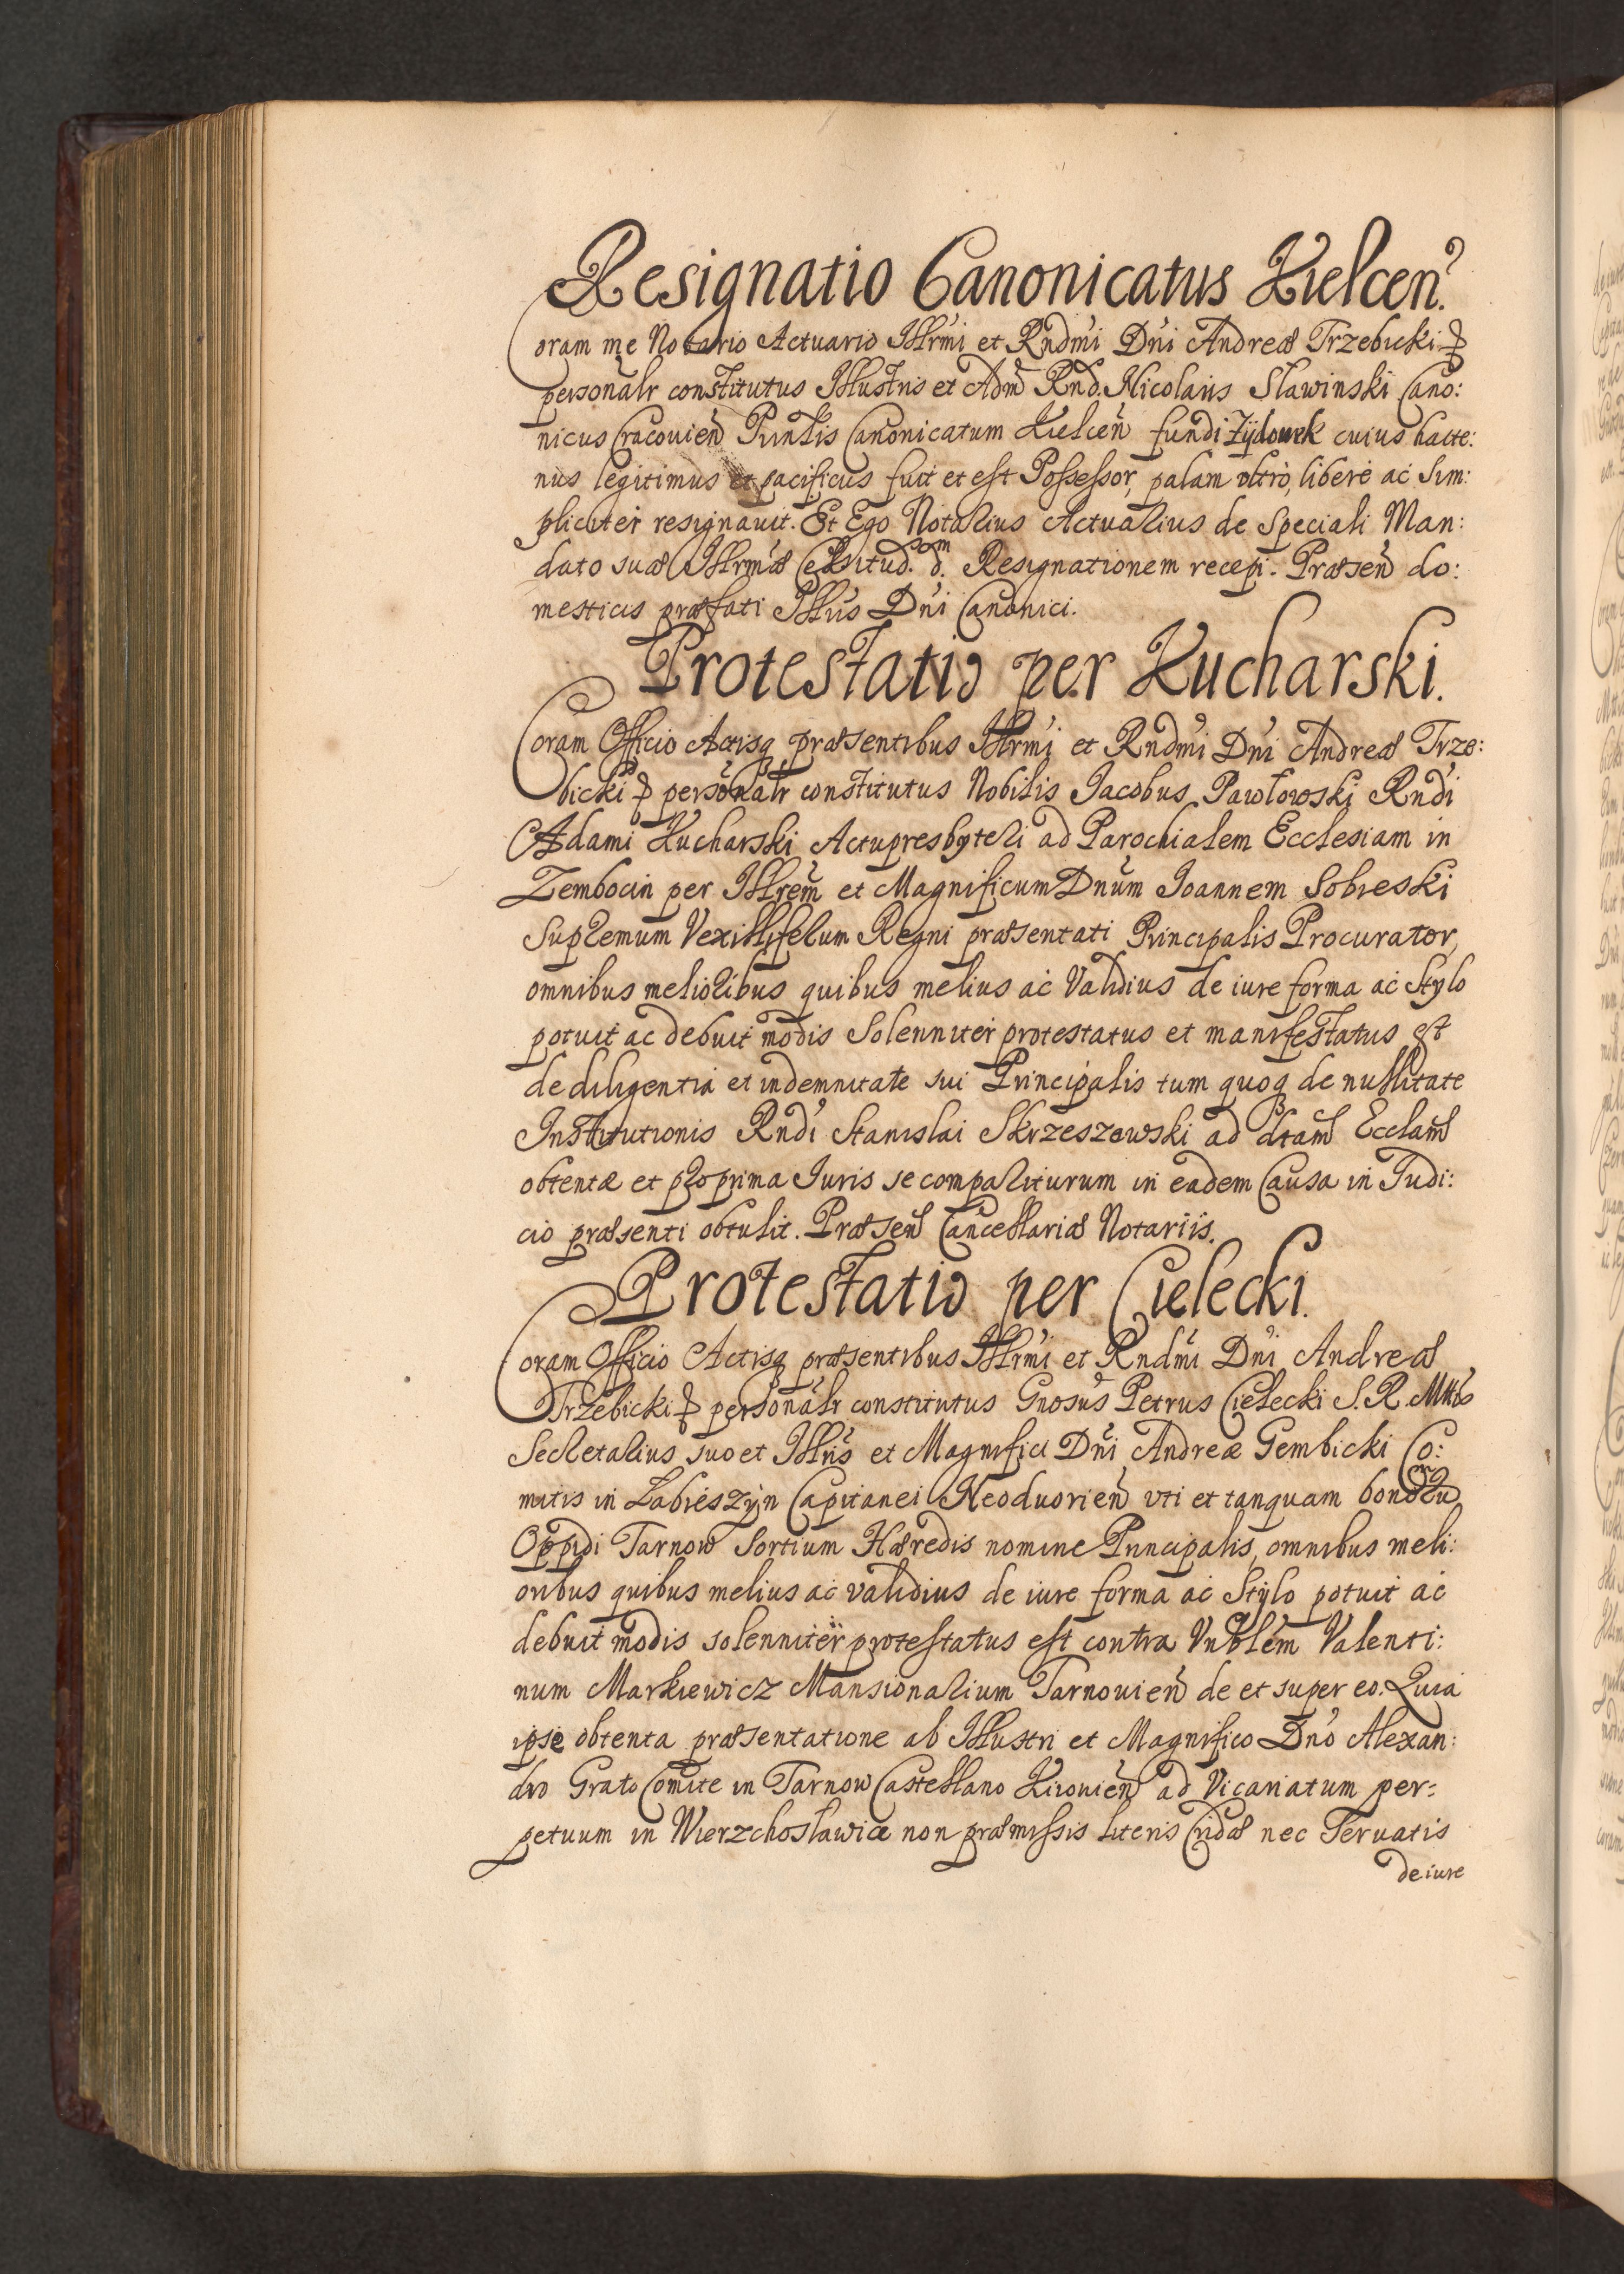 Resignatio Canonicatus Kielcen.
Coram me Notario Actuario Illrmi et Rndmi Dni Andreæ Trzebicki
personalr constitutus Illustris et Adm Rnd. Nicolaus Slawinski Cano:
nicus Cracouien Pnntis Canonicatum Kielcen fundi Zÿdowek cuius hacte:
nus legitimus et pacificus fuit et est Possessor, palam vltro, libere ac Sim:
pliciter resignauit. Et Ego Notarius Actuarius de Speciali Man:
dato suæ Illrmæ Celsitud. d. Resignationem recepi. Præsen do:
mesticis præfati Illris Dni Canonici.
Protestatio per Kucharski.
Coram Officio Actisq præsentibus Illrmi et Rndmi Dni Andreæ Trze:
bicki personalr constitutus Nobilis Jacobus Pawłowski Rndi
Adami Kucharski Actupresbyteri ad Parochialem Ecclesiam in
Zembocin per Illrem et Magnificum Dnum Joannem Sobieski
Supremum Vexilliferum Regni præsentati Principalis Procurator,
omnibus melioribus quibus melius ac Validius de iure forma ac Stylo
potuit ac debuit modis Solenniter protestatus et manifestatus est
de diligentia et indemnitate sui Principalis tum quoq de nullitate
Institutionis Rndi Stanislai Skrzeszowski ad dtam Ecclam
obtentæ et pro prima Iuris se compariturum in eadem Causa in Judi:
cio præsenti obtulit. Præsen Cancellariæ Notariis.
Protestatio per Cielecki.
Coram Officio Actisq præsentibus Illrmi et Rndmi Dni Andreæ
Trzebicki personalr constitutus Gnosus Petrus Cielecki S. R. Mttis
Secretarius suo et Illris et Magnifici Dni Andreæ Gembicki Co:
mitis in Łabieszÿn Capitanei Neoduorien vti et tanquam bonoru
Oppidi Tarnow Sortium Hæredis nomine Principalis, omnibus meli:
oribus quibus melius ac validius de iure forma ac Stylo potuit ac
debuit modis solenniter protestatus est contra Vnblem Valenti:
num Markiewicz Mansionarium Tarnouien de et super eo. Quia
ipse obtenta præsentatione ab Illustri et Magnifico Dno Alexan:
dro Grato Comite in Tarnow Castellano ad Vicariatum per=
petuum in Wierzchosławice non præmissis literis Cridæ nec Seruatis
de iure